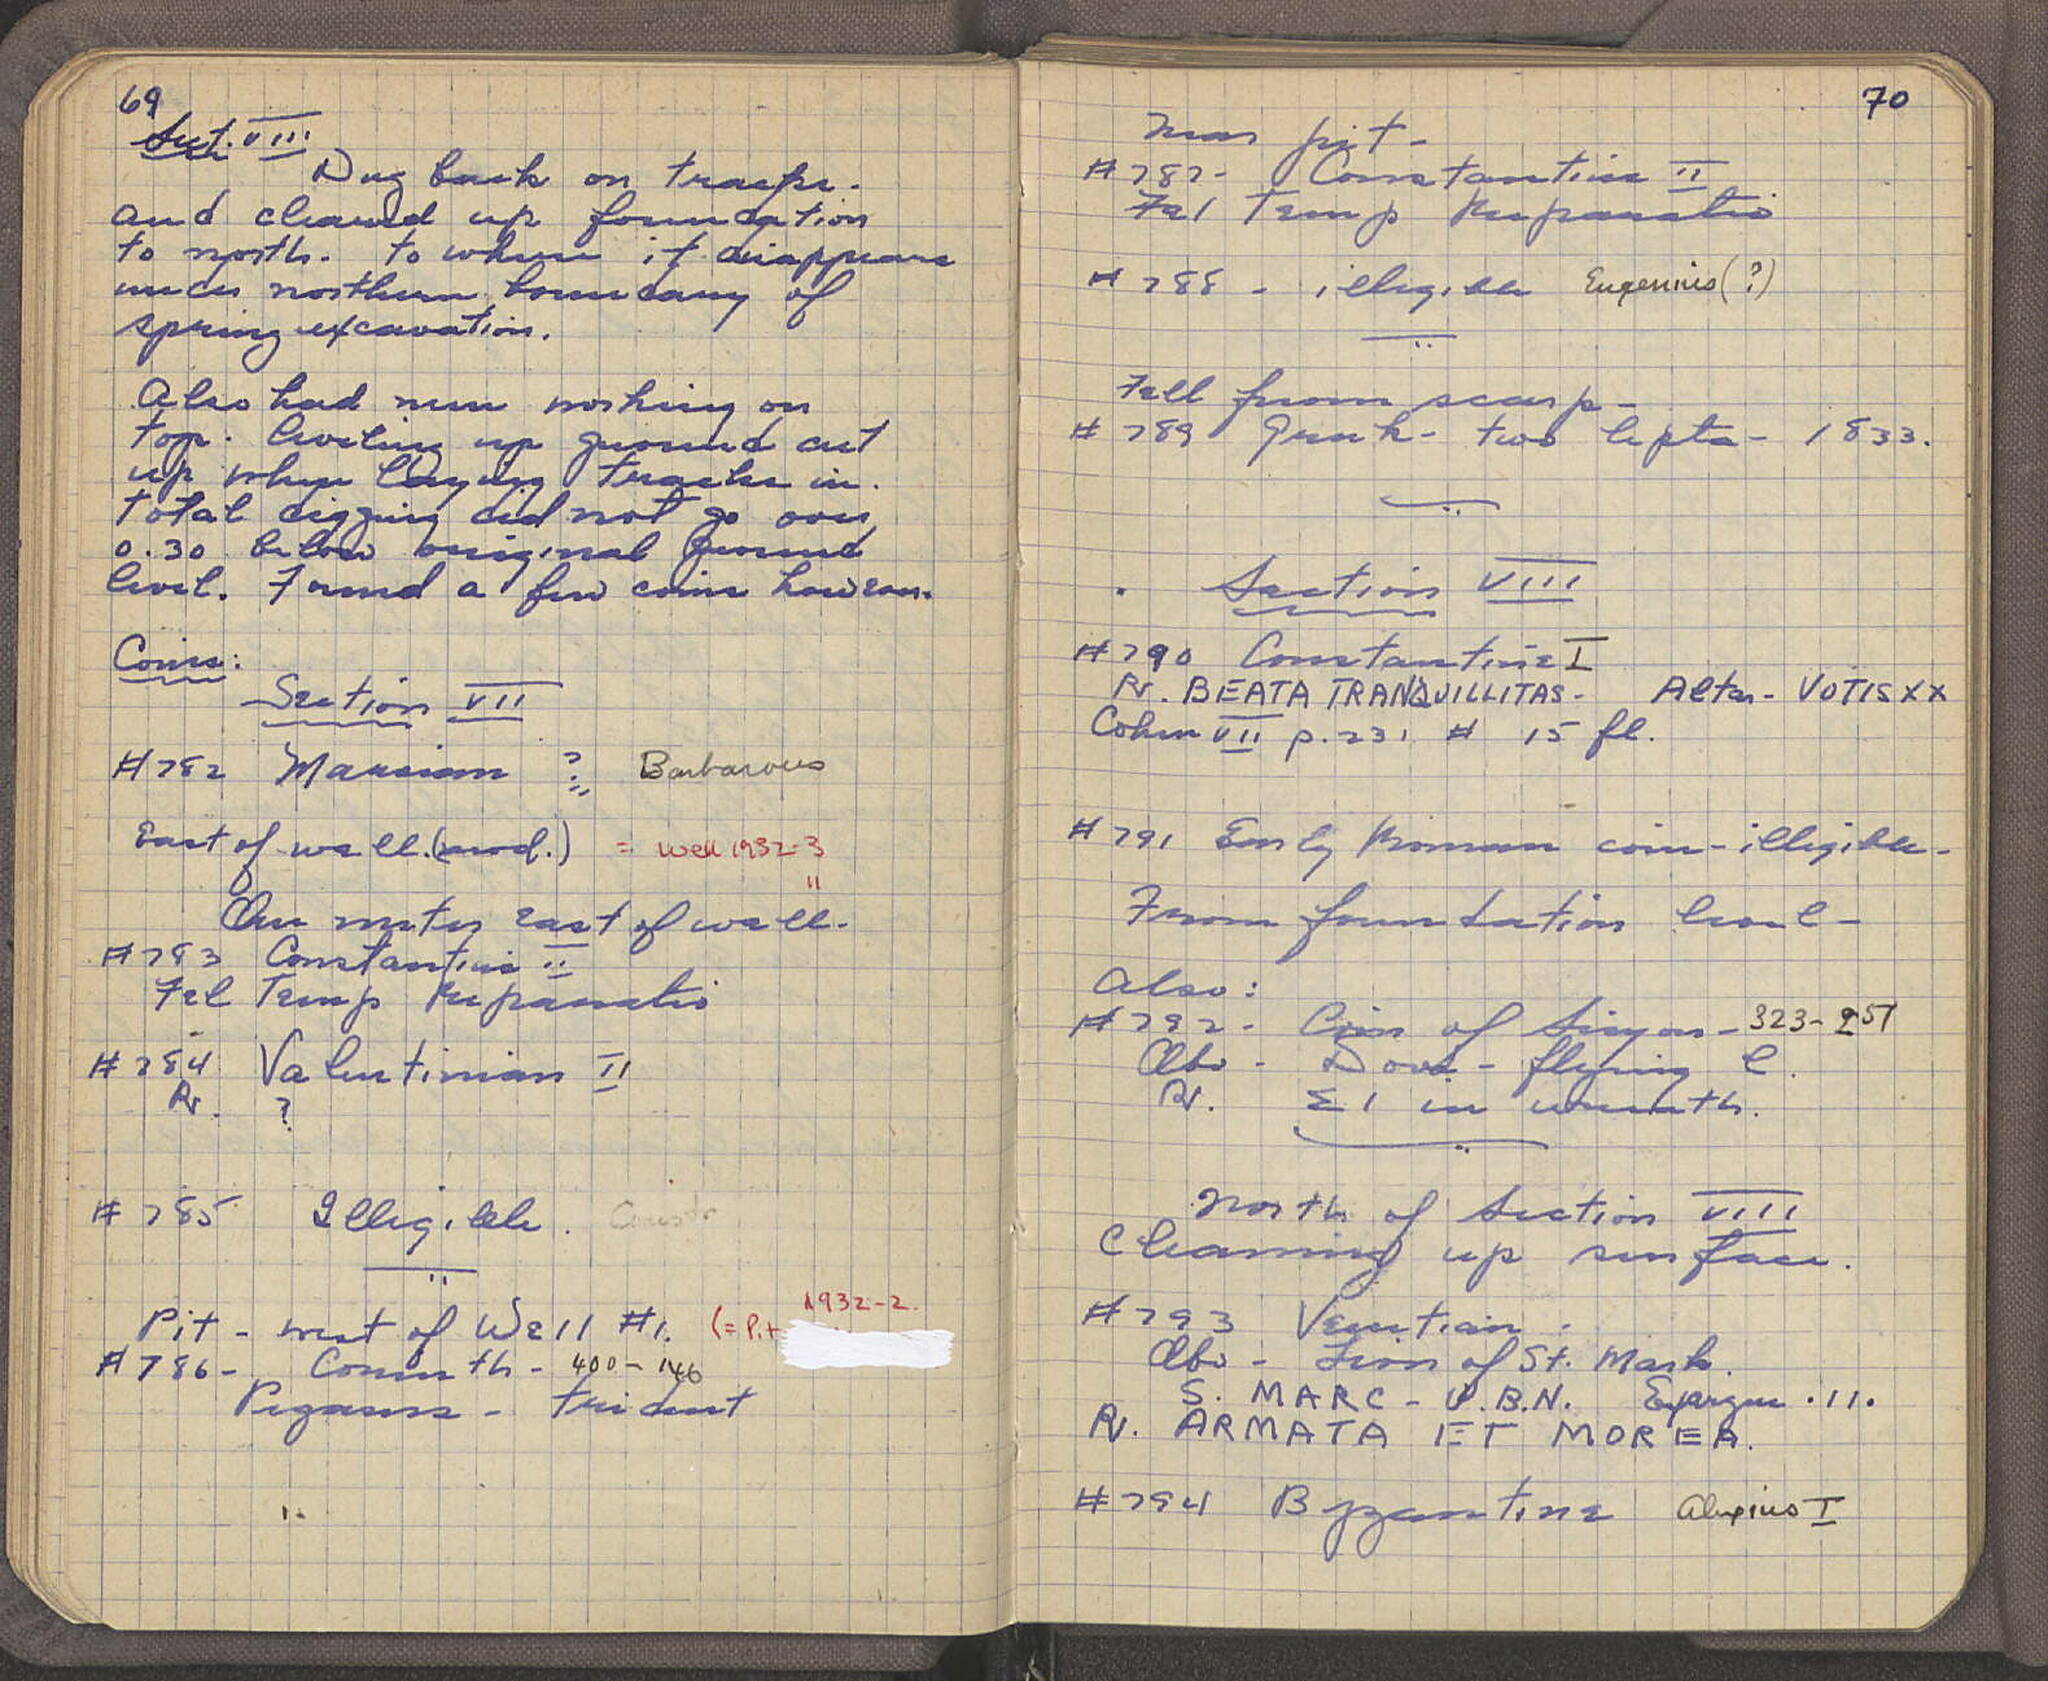 69
Sect. VIII
Dug back on trench.
and cleaned up foundation
to north. to where it disappears
under northern boundary of
spring excavation.
Also had men working on
top. leveling up ground cut
up when laying tracks in.
total digging did not go over
0.30 below original ground
level. Found a few coins however.
Coins:
Section VII
#782 Marcian ? Barbarous
East of well. (mod.) = Well 1932-3
"
One meter east of well.
#783 Constantius II
Fel Temp Reparatio
#784 Valentinian II
Rv. ?
#785 Illegible.
Pit - west of Well #1. (= Pit 1932-2.
#786 - Corinth - 400-146
Pegasus - trident
70
Near pit -
#787 - Constantius II
Fel Temp Reparatio
#788 - illegible Eugenius (?)
Fell from scarp -
#789 Greek - two lepta - 1833.
Section VIII
#790 Constantine I
Rv. BEATA TRANQUILLITAS - Altar - VOTIS XX
Cohen VII p. 231 # 15 fl.
#791 Early Roman coin - illegible -
From foundation level -
Also:
#792 - Coin of Sicyon - 323-251
Obv - Dove - flying l.
Rv. ΣI in wreath.
North of Section VIII
Cleaning up surface.
#793 Venetian -
Obv - Lion of St. Mark.
S. MARC - V.B.N. Exergue .11.
Rv. ARMATA ET MOREA.
#794 Byzantine Alexius I